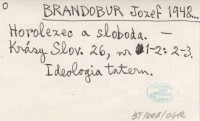 o
BRANDOBUR Jozef 1948...
Horolezec a sloboda. —
Krásy Slov. 26, nr 1-2: 2-3.
Ideologia tatern.